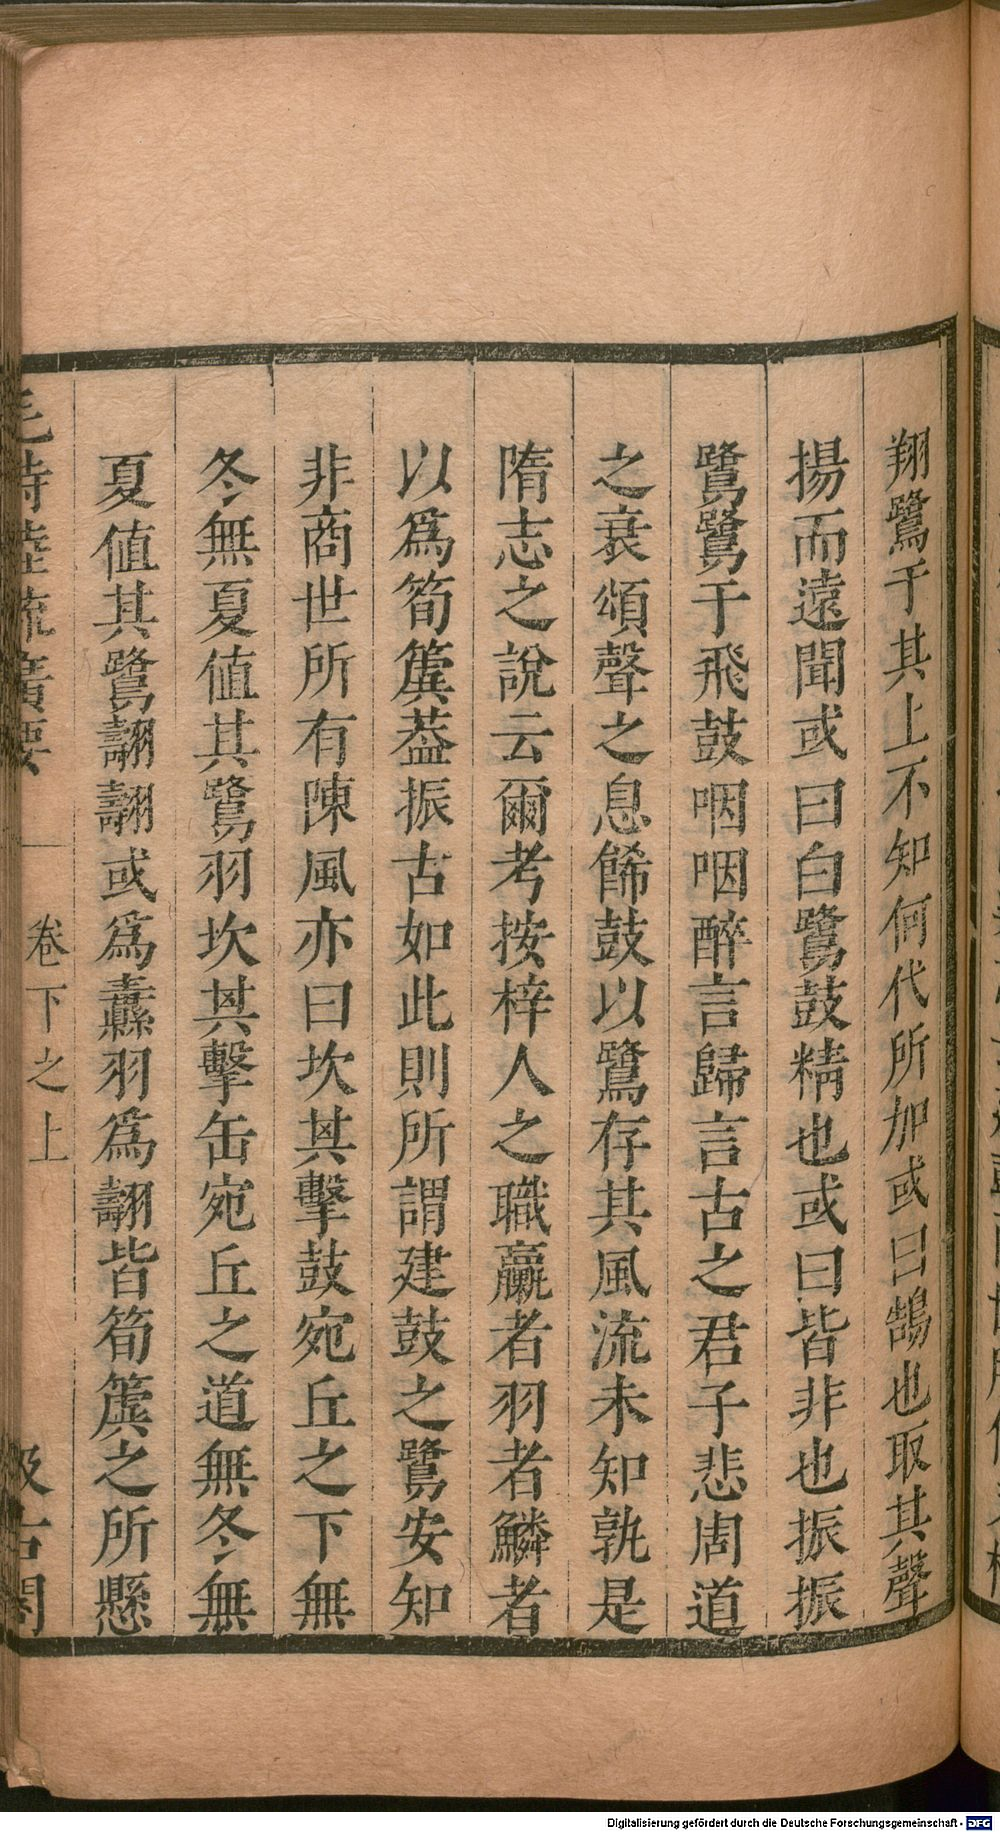 翔鷺于其上不知何代所加或曰鵠也取其聲
揚而遠聞或曰白鷺鼓精也或曰皆非也振振
鷺鷺于飛鼓咽咽醉言歸言古之君子悲周道
之衰頌聲之息飾鼓以鷺存其風流未知孰是
隋志之說云爾考按梓人之職臝者羽者鱗者
以爲筍簨葢振古如此則所謂建鼓之鷺安知
非商世所有陳風亦曰坎其擊鼓宛丘之下無
冬無夏值其鷺羽坎其擊缶宛丘之道無冬無
夏值其鷺翿翿或爲纛羽爲翿皆筍簴之所懸
毛詩陸疏廣要
卷下之上
汲古閣
Digitalisierung gefördert durch die Deutsche Forschungsgemeinschaft - DFG